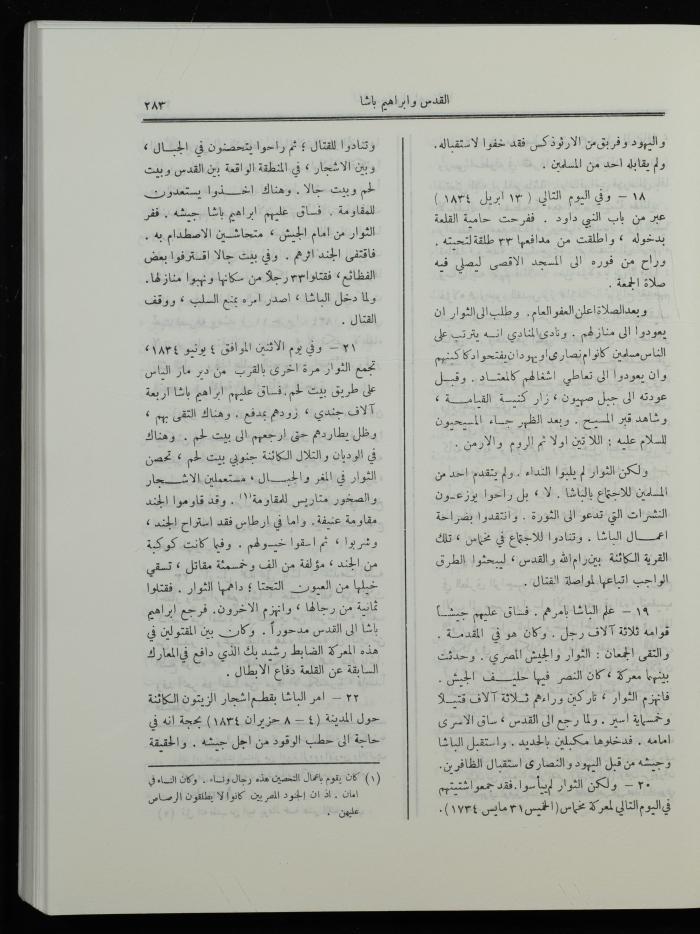 القدس وابراهيم باشا
٢٨٣
واليهود وفريق من الارثوذكس فقد خفوا لاستقباله.
ولم يقابله احد من المسلمين .
١٨ – وفي اليوم التالي ( ١٣ ابريل ١٨٣٤ )
عبر من باب النبي داود . ففرحت حامية القلعة
بدخوله ، واطلقت من مدافعها ٣٣ طلقة لتحيته .
وراح من فوره الى المسجد الاقصى ليصلي فيه
صلاة الجمعة .
وبعد الصلاة اعلن العفو العام . وطلب الى الثوار ان
يعودوا الى منازلهم . ونادى المنادي انه يترتب على
الناس مسلمين كانوا م نصارى او يهود ان يفتحوا دكاكينهم
وان يعودوا الى تعاطي اشغالهم كالمعتاد . وقبل
عودته الى جبل صهيون ، زار كنيسة القيامة ،
وشاهد قبر المسيح . وبعد الظهر جاء المسيحيون
للسلام عليه : اللاتين اولا ثم الروم والارمن .
ولكن الثوار لم يلبوا النداء . ولم يتقدم احد من
المسلمين للاجتماع بالباشا . لا ، بل راحوا يوزعون
النشرات التي تدعو الى الثورة . وانتقدوا بصراحة
اعمال الباشا . وتنادوا للاجتماع في مخماس ، تلك
القرية الكائنة بين رام الله والقدس ، ليبحثوا الطرق
الواجب اتباعها لمواصلة القتال .
١٩ – علم الباشا بامرهم . فساق عليهم جيشاً
قوامه ثلاثة آلاف رجل . وكان هو في المقدمة .
والتقى الجمعان : الثوار والجيش المصري . وحدثت
بينهما معركة ، كان النصر فيها حليف الجيش .
فانهزم الثوار ، تاركين وراءهم ثلاثة آلاف قتيلاً
وخمسماية اسير . ولما رجع الى القدس ، ساق الاسرى
امامه . فدخلوها مكبلين بالحديد . واستقبل الباشا
وجيشه من قبل اليهود والنصارى استقبال الظافرين .
٢٠ – ولكن الثوار لم ييأسوا. فقد جمعوا شتيتهم
في اليوم التالي لمعركة مخماس (الخميس ٣١ مايس ١٧٣٤).
وتنادوا للقتال ؛ ثم راحوا يتحصنون في الجبال ،
وبين الاشجار ، في المنطقة الواقعة بين القدس وبيت
لحم وبيت جالا . وهناك اخذوا يستعدون
للمقاومة . فساق عليهم ابراهيم باشا جيشه . ففر
الثوار من امام الجيش ، متحاشين الاصطدام به .
فاقتفى الجند اثرهم . وفي بيت جالا اقترفوا بعض
الفظائع ، فقتلوا ٣٣ رجلاً من سكانها ونهبوا منازلها.
ولما دخل الباشا ، اصدر امره بمنع السلب ، ووقف
القتال .
٢١ – وفي يوم الاثنين الموافق ٤ يونيو ١٨٣٤ ،
تجمع الثوار مرة اخرى بالقرب من دير مار الياس
على طريق بيت لحم. فساق عليهم ابراهيم باشا اربعة
آلاف جندي ، زودهم بمدفع . وهناك التقى بهم ،
وظل يطاردهم حتى ارجعهم الى بيت لحم . وهناك
في الوديان والتلال الكائنة جنوبي بيت لحم ، تحصن
الثوار في المغر والجبال ، مستعملين الاشجار
والصخور متاريس للمقاومة(١) . وقد قاوموا الجند
مقاومة عنيفة . واما في ارطاس فقد استراح الجند ،
وشربوا ، ثم اسقوا خيولهم . وفيما كانت كوكبة
من الجند ، مؤلفة من الف وخمسمئة مقاتل ، تسقي
خيلها من العيون التحتا ؛ داهمها الثوار . فقتلوا
ثمانية من رجالها ، وانهزم الآخرون . فرجع ابراهيم
باشا الى القدس مدحوراً . وكان بين المقتولين في
هذه المعركة الضابط رشيد بك الذي دافع في المعارك
السابقة عن القلعة دفاع الابطال .
٢٢ – امر الباشا بقطع اشجار الزيتون الكائنة
حول المدينة (٤ – ٨ حزيران ١٨٣٤) بحجة انه في
حاجة الى حطب الوقود من اجل جيشه . والحقيقة
(١) كان يقوم باعمال التحصين هذه رجال ونساء . وكان النساء في
امان . اذ ان الجنود المصريين كانوا لا يطلقون الرصاص
عليهن .